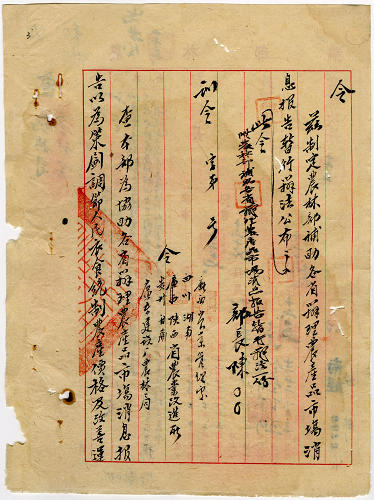 令
茲制定農林部補助各省辦理農產品市場消
息報告暫行辦法公布之
此令
附農林部補助各省辦理農產品市場消息報告暫行辦法一份
部長陳〇〇
訓令 字第 号
令
四川 湖南
廣西 陝西 省農業改進所
貴州 甘肅
廣東建設厅農林局
查本部為協助各省辦理農產品市場消息報
告以為策劃調節人民衣食統制農產價格及改善運